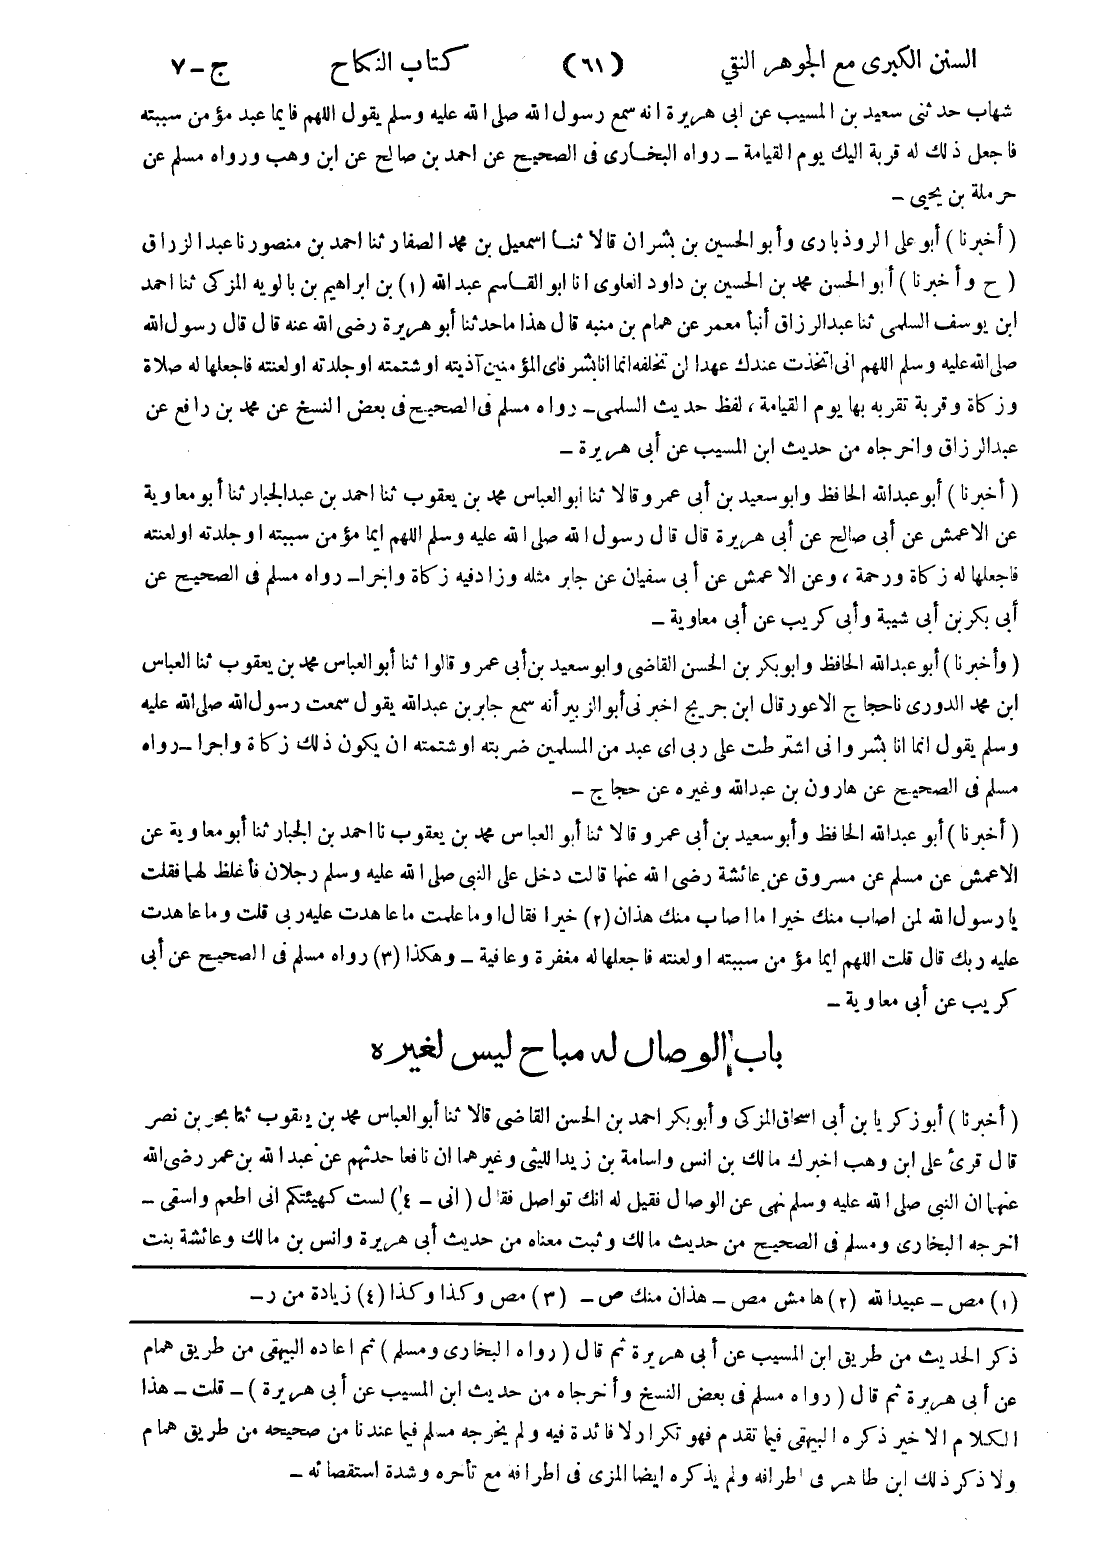 السنن الكبرى مع الجوهر النقي (٦١) كتاب النكاح ج-٧
شهاب حدثنى سعيد بن المسيب عن ابى هريرة انه سمع رسول الله صلى الله عليه وسلم يقول اللهم فايما عبد مؤمن سببته
فاجعل ذلك له قربة اليك يوم القيامة - رواه البخارى فى الصحيح عن احمد بن صالح عن ابن وهب ورواه مسلم عن
حرملة بن يحيى -
( أخبرنا ) أبو على الروذبارى وأبو الحسين بن بشران قالا ثنا اسمعيل بن محمد الصفار ثنا احمد بن منصور نا عبد الرزاق
( ح وأخبرنا ) أبو الحسن محمد بن الحسين بن داود العلوى انا ابو القاسم عبد الله (١) بن ابراهيم بن بالويه المزكى ثنا احمد
ابن يوسف السلمى ثنا عبد الرزاق أنبأ معمر عن همام بن منبه قال هذا ما حدثنا أبو هريرة رضى الله عنه قال قال رسول الله
صلى الله عليه وسلم اللهم انى اتخذت عندك عهدا لن تخلفه انما انا بشر فاى المؤمنين آذيته او شتمته او جلدته او لعنته فاجعلها له صلاة
وزكاة وقربة تقربه بها يوم القيامة ، لفظ حديث السلمى - رواه مسلم فى الصحيح فى بعض النسخ عن محمد بن رافع عن
عبد الرزاق واخرجاه من حديث ابن المسيب عن أبى هريرة -
( أخبرنا ) أبو عبد الله الحافظ وابو سعيد بن أبى عمرو قالا ثنا ابو العباس محمد بن يعقوب ثنا احمد بن عبد الجبار ثنا أبو معاوية
عن الاعمش عن أبى صالح عن أبى هريرة قال قال رسول الله صلى الله عليه وسلم اللهم ايما مؤمن سببته او جلدته او لعنته
فاجعلها له زكاة ورحمة ، وعن الاعمش عن أبى سفيان عن جابر مثله وزاد فيه زكاة واجرا - رواه مسلم فى الصحيح عن
أبى بكر بن أبى شيبة وأبى كريب عن أبى معاوية -
( وأخبرنا ) أبو عبد الله الحافظ وابو بكر بن الحسن القاضى وابو سعيد بن أبى عمرو قالوا ثنا أبو العباس محمد بن يعقوب ثنا العباس
ابن محمد الدورى نا حجاج الاعور قال ابن جريج اخبرنى أبو الزبير أنه سمع جابر بن عبد الله يقول سمعت رسول الله صلى الله عليه
وسلم يقول انما انا بشر وانى اشترطت على ربى اى عبد من المسلمين ضربته او شتمته ان يكون ذلك زكاة واجرا - رواه
مسلم فى الصحيح عن هارون بن عبد الله وغيره عن حجاج -
( أخبرنا ) أبو عبد الله الحافظ وأبو سعيد بن أبى عمرو قالا ثنا أبو العباس محمد بن يعقوب نا احمد بن الجبار ثنا أبو معاوية عن
الاعمش عن مسلم عن مسروق عن عائشة رضى الله عنها قالت دخل على النبى صلى الله عليه وسلم رجلان فأغلظ لهما فقلت
يا رسول الله لمن اصاب منك خيرا ما اصاب منك هذان (٢) خيرا فقال او ما علمت ما عاهدت عليه ربى قلت وما عاهدت
عليه ربك قال قلت اللهم ايما مؤمن سببته او لعنته فاجعلها له مغفرة وعافية - وهكذا (٣) رواه مسلم فى الصحيح عن أبى
كريب عن أبى معاوية -
باب الوصال له مباح ليس لغيره
( أخبرنا ) أبو زكريا بن أبى اسحاق المزكى وأبو بكر احمد بن الحسن القاضى قالا ثنا أبو العباس محمد بن يعقوب ثنا بحر بن نصر
قال قرئ على ابن وهب اخبرك مالك بن انس واسامة بن زيد الليثى وغيرهما ان نافعا حدثهم عن عبد الله بن عمر رضى الله
عنهما ان النبى صلى الله عليه وسلم نهى عن الوصال فقيل له انك تواصل فقال ( انى - ٤ ) لست كهيئتكم انى اطعم واسقى -
اخرجه البخارى ومسلم فى الصحيح من حديث مالك وثبت معناه من حديث أبى هريرة وانس بن مالك وعائشة بنت
(١) مص - عبيد الله (٢) هامش مص - هذان منك ص - (٣) مص وكذا وكذا (٤) زيادة من ر -
ذكر الحديث من طريق ابن المسيب عن أبى هريرة ثم قال ( رواه البخارى ومسلم ) ثم اعاده البيهقى من طريق همام
عن أبى هريرة ثم قال ( رواه مسلم فى بعض النسخ وأخرجاه من حديث ابن المسيب عن أبى هريرة ) - قلت - هذا
الكلام الاخير ذكره البيهقى فيما تقدم فهو تكرار لا فائدة فيه ولم يخرجه مسلم فيما عندنا من صحيحه من طريق همام
ولا ذكر ذلك ابن طاهر فى اطرافه ولم يذكره ايضا المزى فى اطرافه مع تأخره وشدة استقصائه -